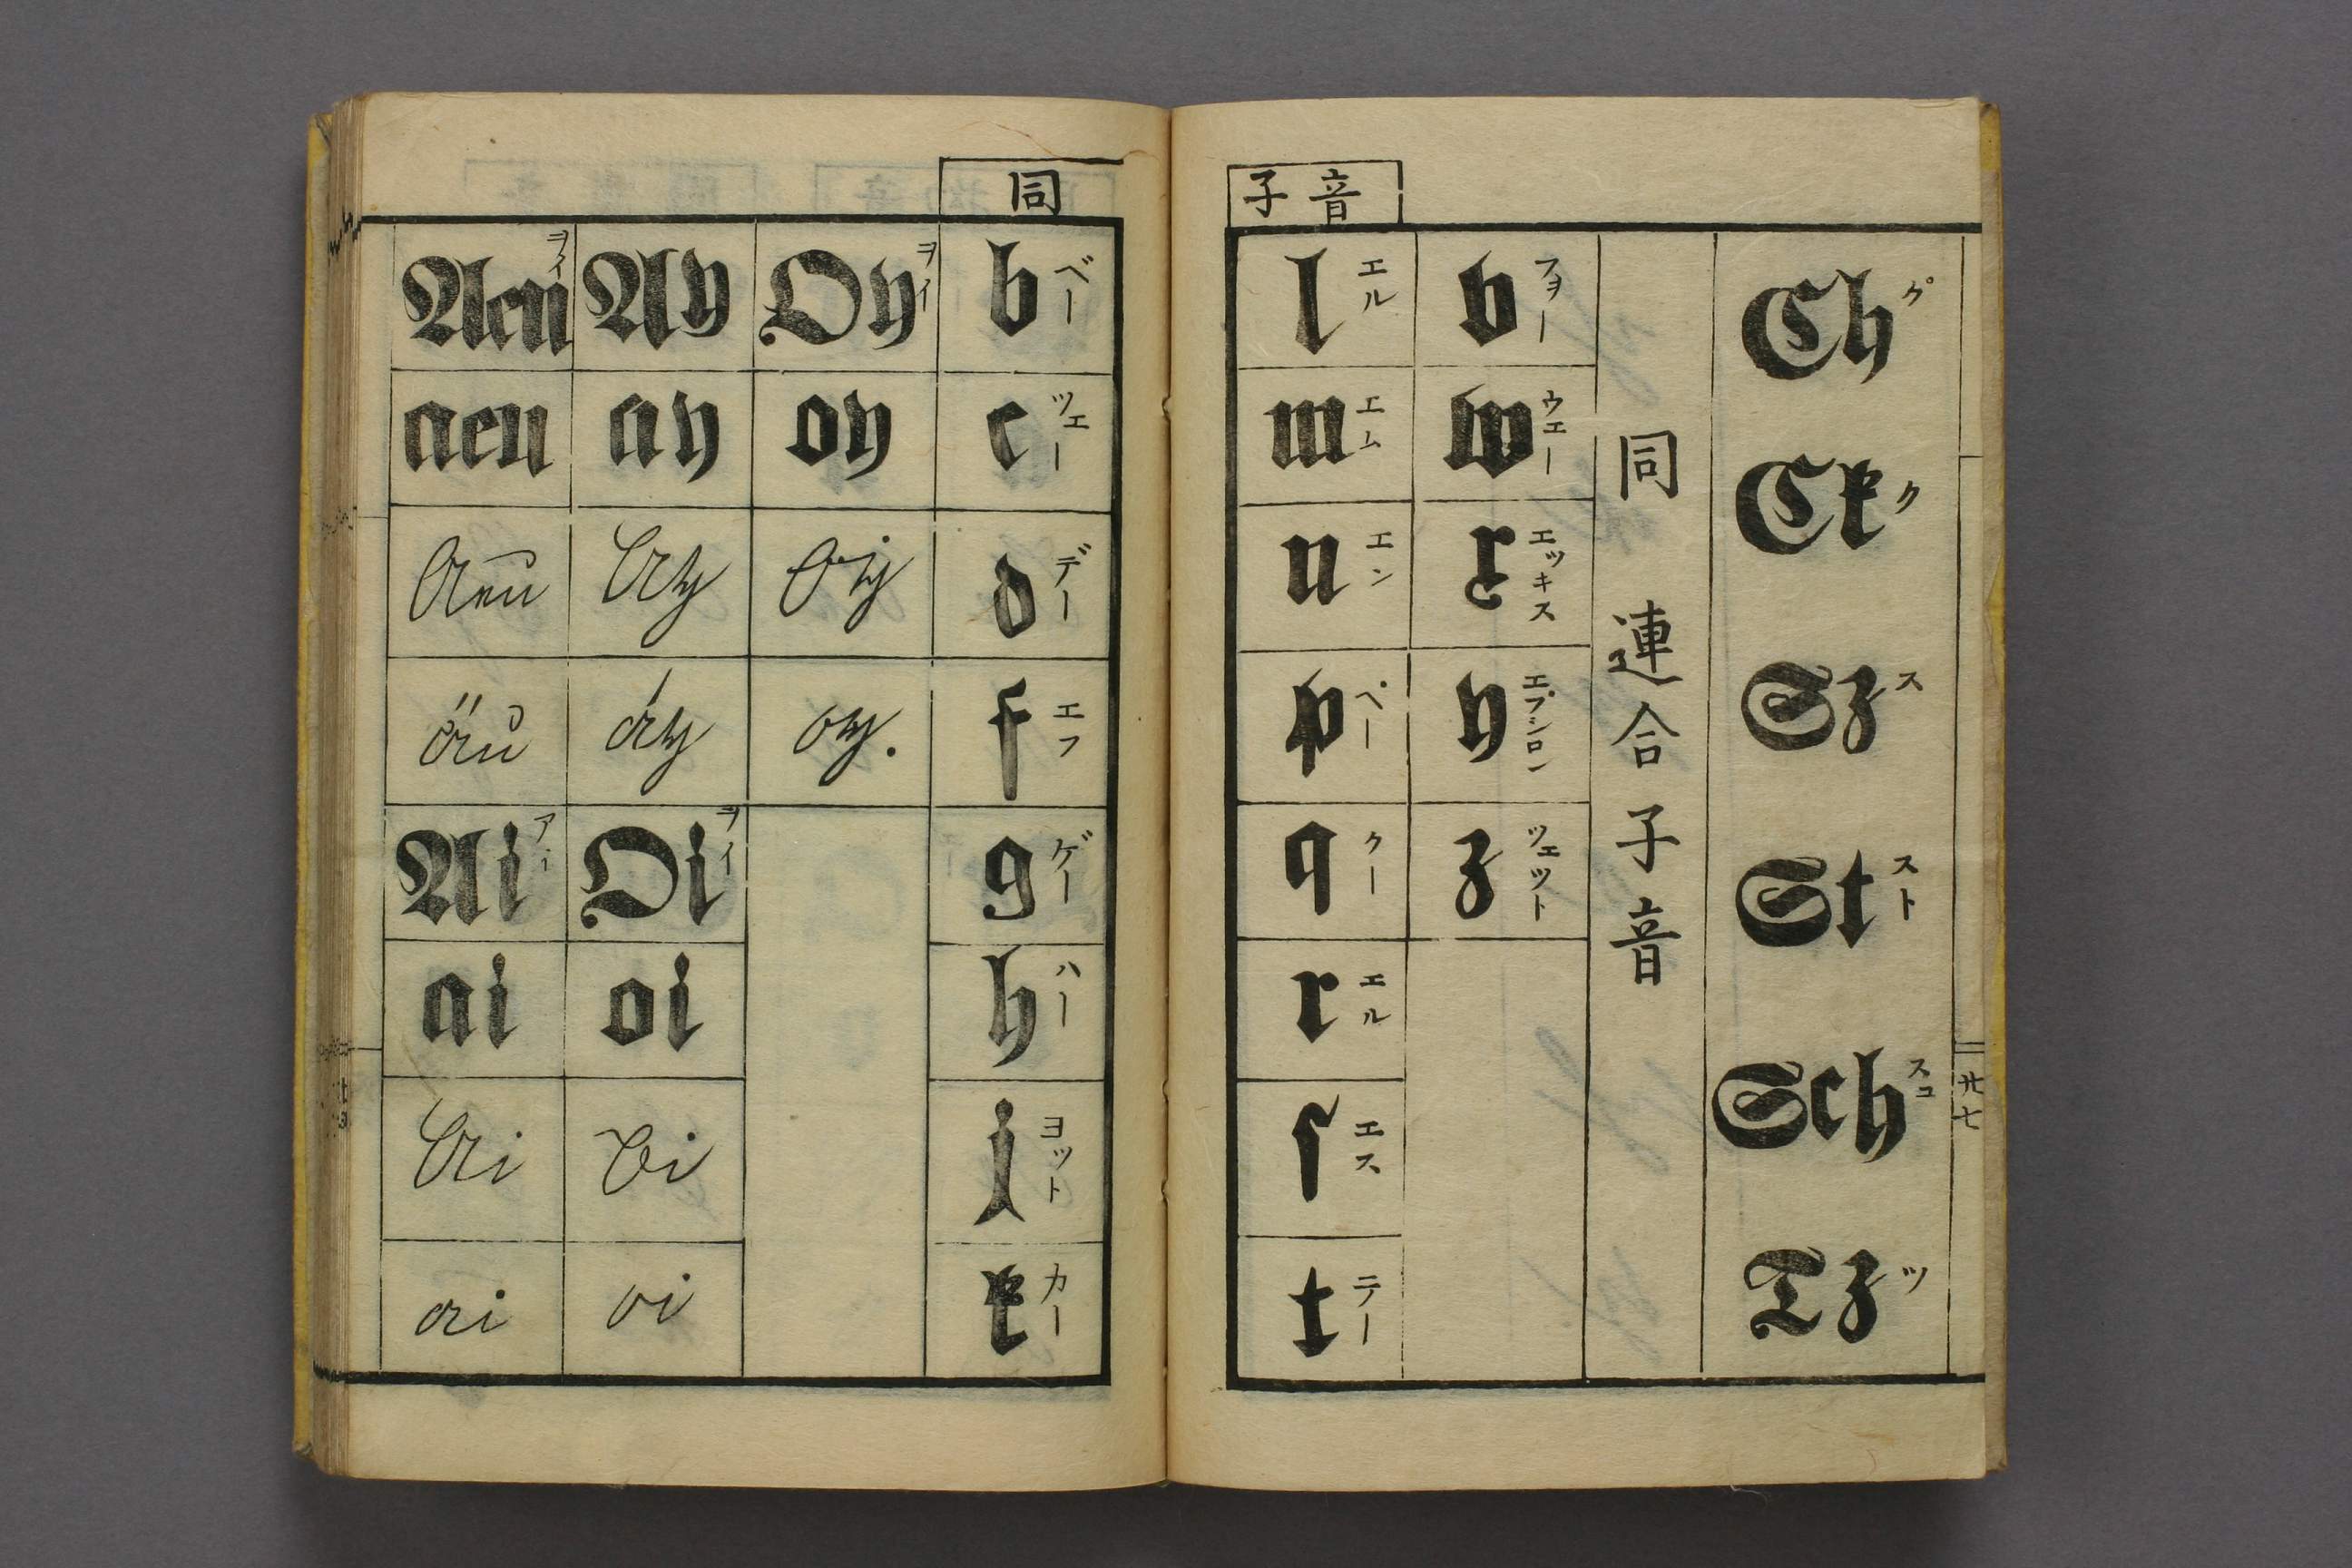 同
Aeu ヲイ
aeu
Aeu
äu
Ai アイ
ai
Ai
ai
Ay
ay
Ay
ay
Oi ヲイ
oi
Oi
oi
Oy ヲイ
oy
Oy
oy.
b ベー
c ツエー
d デー
f エフ
g ゲー
h ハー
j ヨット
k カー
子音
l エル
m エム
n エン
p ペー
q クー
r エル
ſ エス
t テー
v フヲー
w ウエー
x エッキス
y エプシロン
z ツェット
同 連合子音
Ch グ
Ck ク
Sz ス
St スト
Sch スコ
Tz ツ
廿七